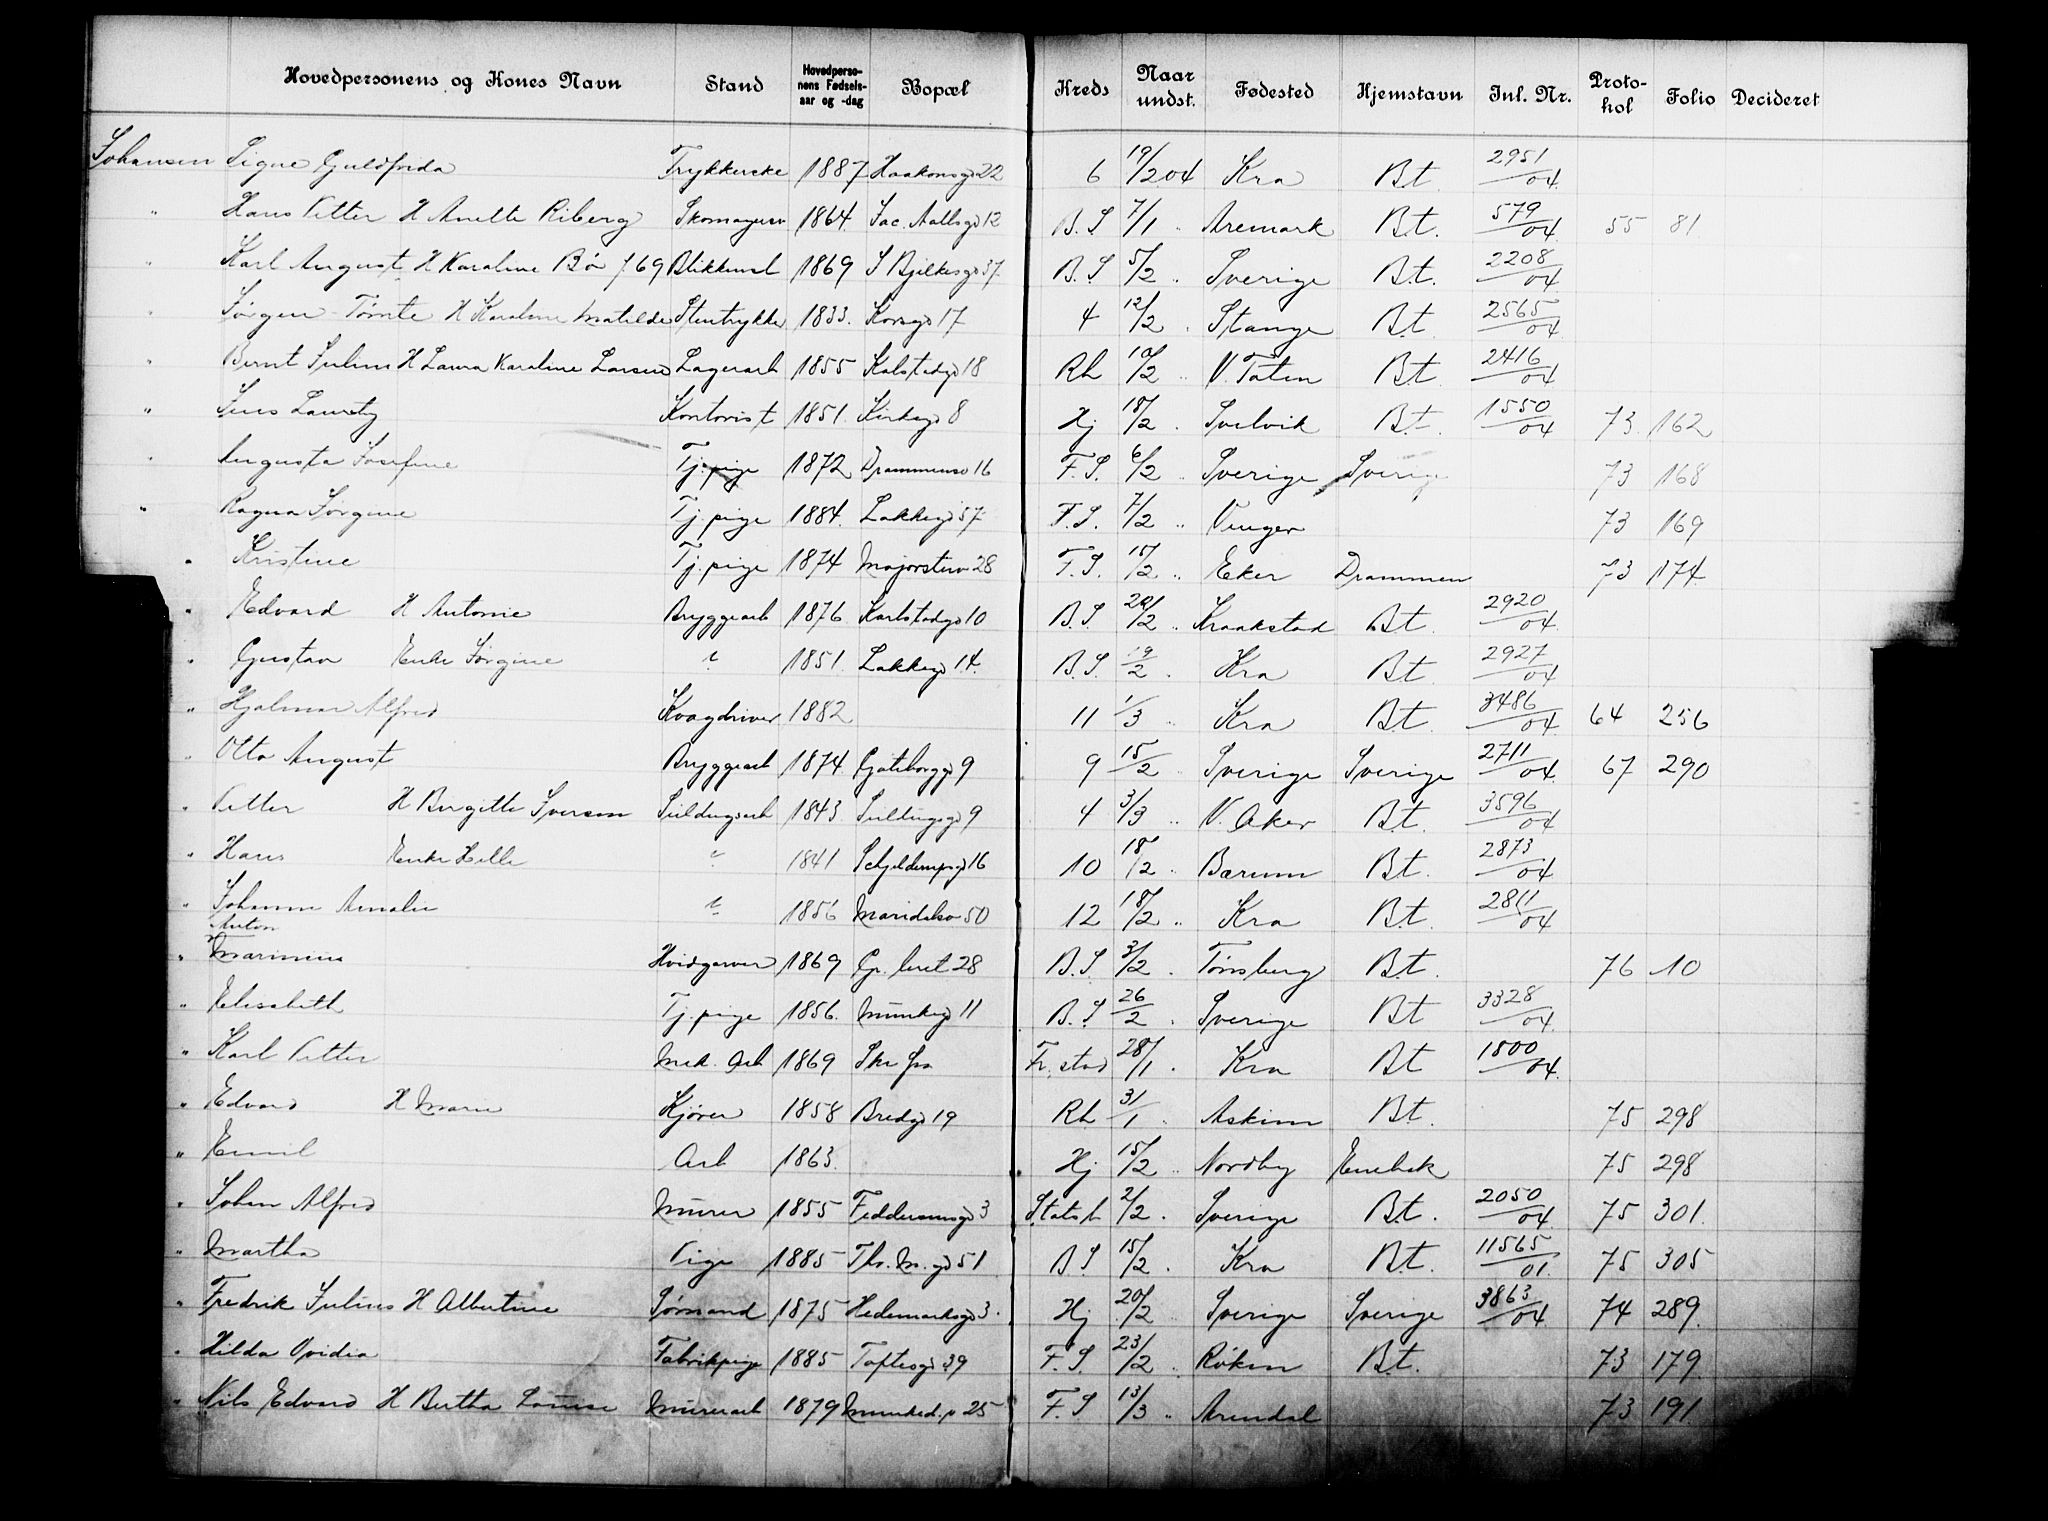 Hovedpersonens og Kones Navn Stand Hovedpersonens Fødselsaar og -dag Bopæl Kreds Naar undst. Fødested Hjemstavn Inl. Nr. Protokol Folio Decideret
Johansen Signe Guldfrida Trykkerske 1887 Haakonsgd 22 6 19/2 04 Kra Bt. 2951/04.
" Hans Petter H Anette Riberg Skomagersv 1864. Jac. Aallsgd 12 B.S. 7/1 " Aremark Bt. 579/04. 55 81.
" Karl August H Karoline Bö f 69 Blikkensl 1869 S Bjelkesgd 37. B.S. 5/2 " Sverige Bt. 2208/04.
" Jørgen Tømte H Karoline Matilde Stentrykker 1833. Korsgd 17 4 12/2 " Stange Bt 2565/04
" Bernt Julius H Laura Karoline Larsen Lagerarb 1855 Kalstadgd 18 Rh 10/2 " V. Toten Bt. 2416/04
" Jens Lauritz Kontorist 1851. Kirkegd 8 Hj 18/2 " Svelvik Bt. 1550/04 73. 162
" Augusta Josefine Tj. pige 1872 Drammensv 16 F.S. 6/2 " Sverige Sverige 73 168
" Ragna Jørgine Tj. pige 1884. Lakkegd 57 F.S. 7/2 " Vinger 73 169
" Kristine Tj. pige 1874 Majorstuv 28 F.S. 15/2 " Eker Drammen 73 174
" Edvard H Antonie Bryggearb 1876 Karlstadgd 10 B.S. 20/2 " Kraakstad Bt. 2920/04.
" Gustav Enke Jørgine " 1851. Lakkegd 14. B.S. 19/2 " Kra Bt. 2927/04
" Hjalmar Alfred Kvægdriver 1882 11 1/3 " Kra Bt. 3486/04. 64 256
" Otto August Bryggearb 1874. Gøteborggd 9 9 15/2 " Sverige Sverige 2711/04. 67 290
" Petter H Birgitte Iversen 1843. 9 4 3/3 " V. Aker Bt. 3596/04
" Hans Enke Helle " 1841 Schjelderupsgd 16 10 18/2 " Bærum Bt. 2873/04
" Johanne Amalie " 1856 Maridalsv 50 12 18/2 " Kra Bt. 2811/04
Anton
" Marinius Hvidgarver 1869 Gr. leret 28 B.S. 3/2 " Tønsberg Bt. 76 10
" Elisabeth Tj. pige 1856. Munkegd 11 B.S. 26/2 " Sverige Bt 3328/04.
" Karl Petter Mek. Arb 1869 B 28/1 " Kra Bt 1800/04.
" Edvard H Marie Kjører 1858 Bredgd 19 Rh 31/1 " Askim Bt. 75 298
" Emil Arb 1863. Hj 15/2 " Nordby Enebak 75 298
" Johan Alfred Murer 1855 Feddersensgd 3 Statsb 2/2 " Sverige Bt. 2050/04. 75 301.
" Martha Pige 1885 Th. M. gd 51 B.S. 15/2 " Kra Bt. 11565/01. 75 305
" Fredrik Julius H Albertine Sømand 1875 Hedemarksgd 3. Hj 20/2 " Sverige Sverige 3863/04. 74 289.
" Hilda Ovidia Fabrikpige 1885 Toftesgd 39 F.S. 23/2 " Røken Bt. 73 179
" Nils Edvard H Bertha Louise Murerarb 1879 Munked. v 25 F.S. 13/3 " Arendal 73 191